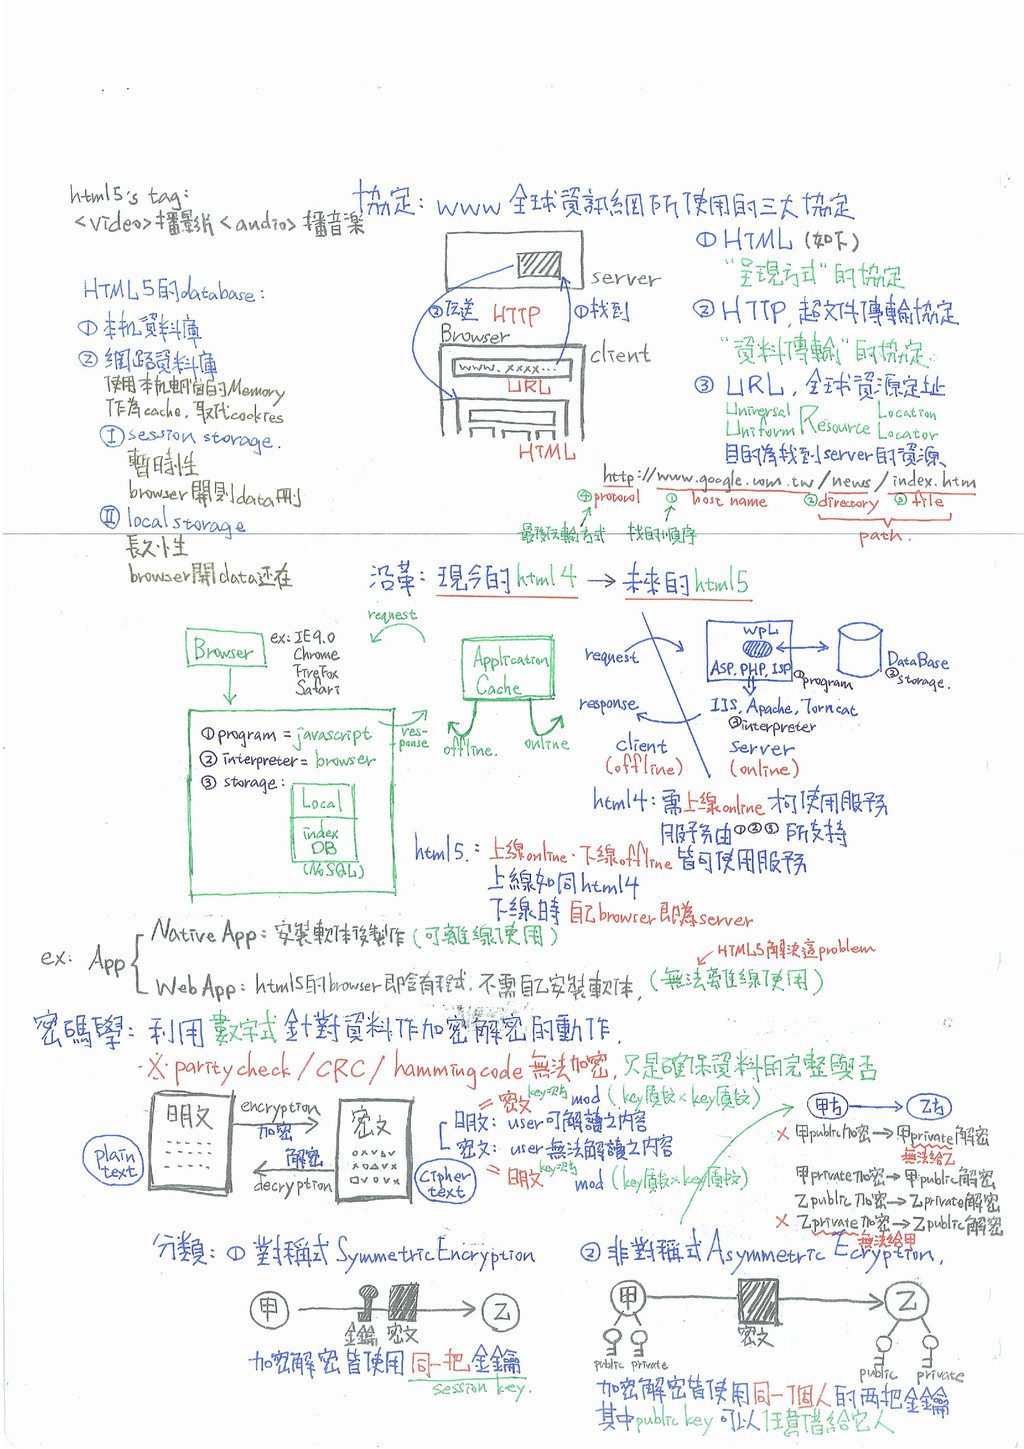 html5's tag:
<video>播影片 <audio> 播音樂
HTML5的database:
① 本機資料庫
② 網路資料庫
使用本機端的Memory
作為cache, 取代cookies
Ⅰ session storage.
暫時性
browser 關則data刪
Ⅱ local storage
長久性
browser關data還在
協定: www 全球資訊網所使用的三大協定
server
②傳送 HTTP ①找到
Browser
client
www.xxxx...
URL
HTML
① HTML (如下)
"呈現方式"的協定
② HTTP, 超文件傳輸協定
"資料傳輸"的協定.
③ URL, 全球資源定址
Universal Resource Location
Uniform Locator
目的為找到server的資源、
http://www.google.com.tw/news/index.htm
④protocol ① host name ②directory ③ file
最後傳輸方式 找的順序 path.
沿革: 現今的html4 → 未來的html5
request
Browser
ex: IE9.0
Chrome
FireFox
Safari
Application
Cache
response
offline. online
① program = javascript
② interpreter = browser
③ storage:
Local
index
DB
(NoSQL)
request
response
WPL
ASP, PHP, JSP
①program
DataBase
③storage.
IIS, Apache, Tomcat
②interpreter
client
(offline)
Server
(online)
html4: 需上線online 才可使用服務
服務由①②③所支持
html5.: 上線online.下線offline皆可使用服務
上線如同html4
下線時 自己browser即為server
ex: App
Native App: 安裝軟体後製作(可離線使用)
HTML5解決這problem
Web App: html5的browser即含有程式, 不需自己安裝軟体, (無法離線使用)
密碼學: 利用數字式針對資料作加密解密的動作.
※ parity check / CRC / hamming code 無法加密, 只是確保資料的完整與否
明文
plain text
encryption
加密
解密
decryption
密文
Cipher text
= 密文 key次方 mod (key質數×key質數)
明文: user可解讀之內容
密文: user無法解讀之內容
= 明文 key次方 mod (key質數×key質數)
甲方 → 乙方
× 甲public加密→甲private解密
無法給乙
甲private加密→甲public解密
乙public加密→乙private解密
× 乙private加密→乙public解密
無法給甲
分類: ① 對稱式 Symmetric Encryption
甲 乙
金鑰 密文
加密解密皆使用同一把金鑰
session key.
② 非對稱式 Asymmetric Ecryption,
甲 乙
密文
public private
public private
加密解密皆使用同一個人的兩把金鑰
其中public key可以任意借給它人